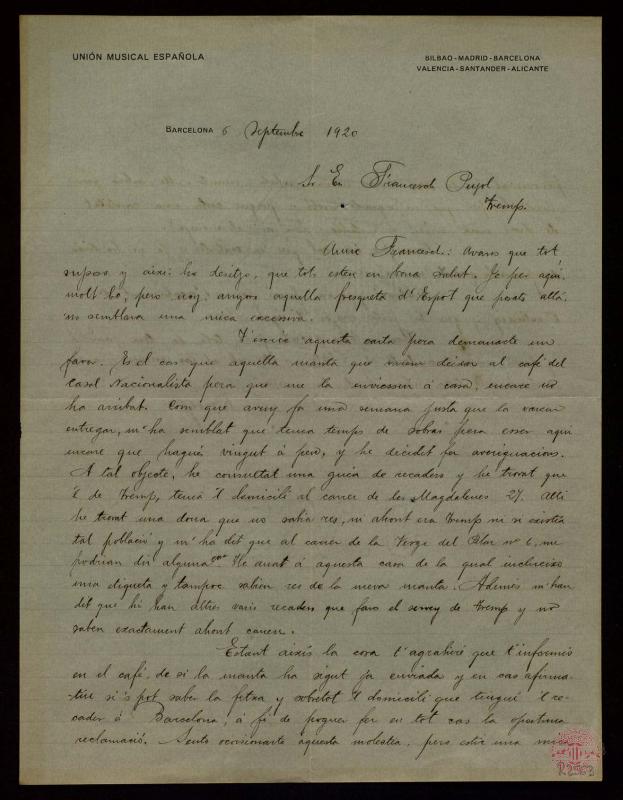 UNIÓN MUSICAL ESPAÑOLA
BILBAO-MADRID-BARCELONA
VALENCIA-SANTANDER-ALICANTE
BARCELONA 6 Septembre 1920
Sr. En Francesch Pujol
Tremp.
Amic Francesch: Avans que tot,
suposo y aixis ho desitjo, que tots esteu en bona salut. Jo per aquí,
molt bo, pero anyoro aquella fresqueta d'Espot que peats allá
'ns semblava una mica excessiva.
T'escric aquesta carta pera demanarte un
favor. Es el cas que aquella manta que varem deixar al café del
Casal Nacionalista pera que me la enviessin á casa, encare no
ha arribat. Com que avuy fa una semana justa que la varem
entregar, m'ha semblat que tenia temps de sobras pera esser aquí
encare que hagués vingut á peu, y he decidit fer averiguacions.
A tal objecte, he consultat una guia de recaders y he trovat que
'l de Tremp, tenia 'l domicili al carrer de les Magdalenes 27. Allí
he trovat una dona que no sabia res, ni ahont era Tremp ni si existia
tal població y m'ha dit que al carrer de la Verge del Pilar nº 6, me
podrian dir alguna cosa. He anat á aquesta casa de la qual
una diqueta y tampoc sabien res de la meva manta. Ademés m'han
dit que hi han altres varis recaders que fan el servey de Tremp y no
saben exactament ahont
Estant aixís la cosa t'agrahiré que t'informis
en el café, de si la manta ha sigut ja enviada y en cas afirma-
tiu si's pot saber la fitxa y sobretot 'l domicili que tingui 'l re-
cader á Barcelona, á fi de poguer fer en tot cas la oportuna
reclamació. Sento ocasionarte aquesta molestia, pero estic una mica
R.2563